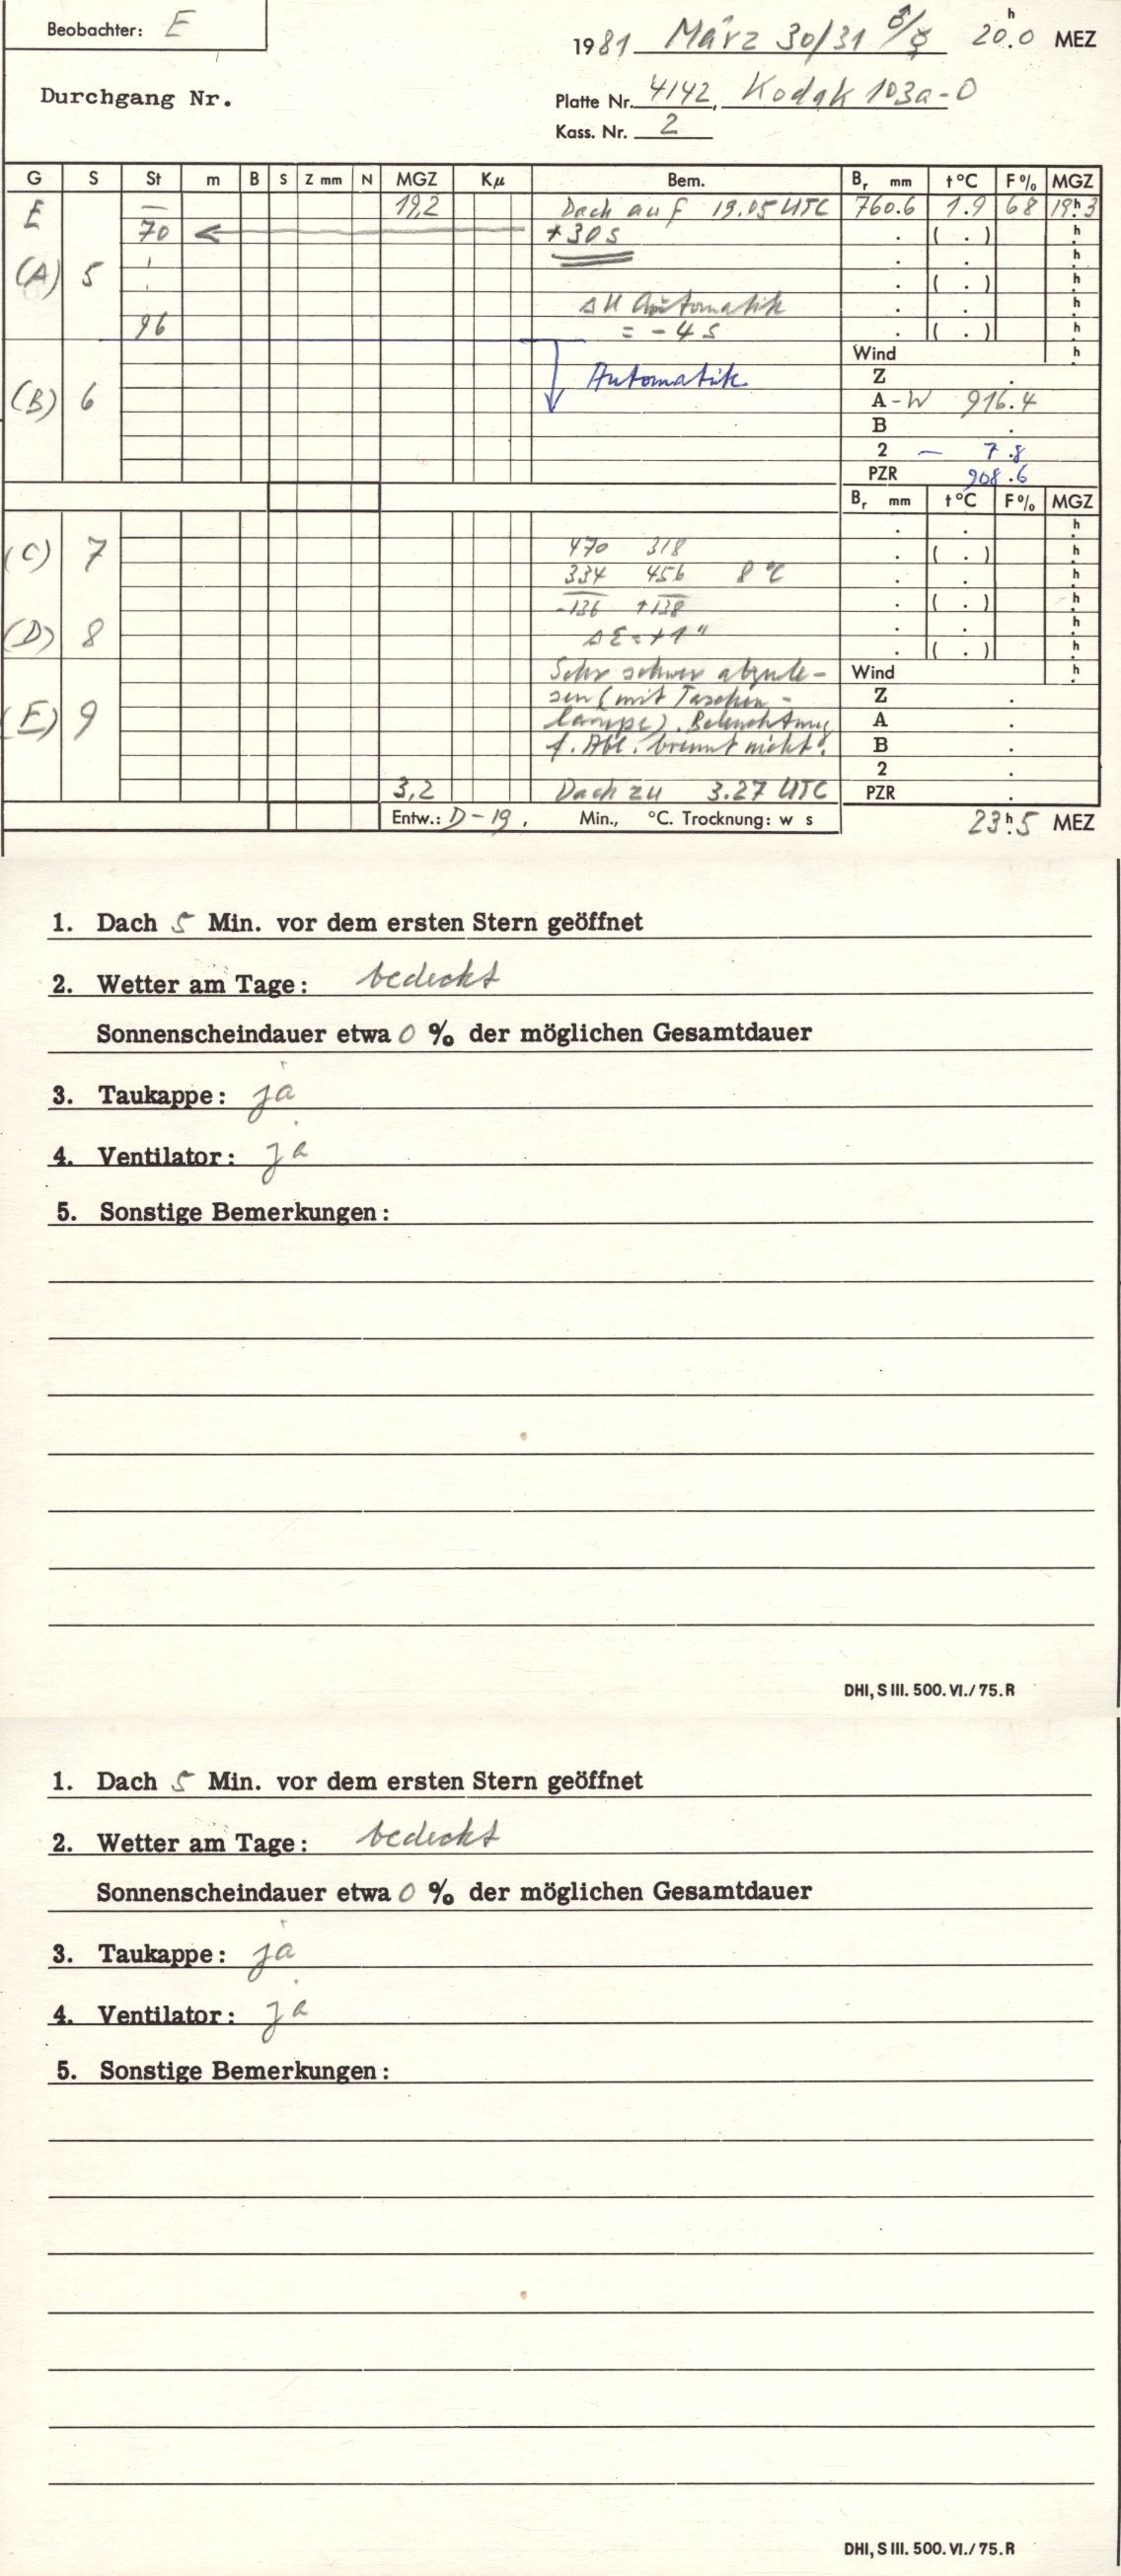 Beobachter: E
1981 März 30/31 ♂/☿ 20h.0 MEZ
Durchgang Nr.
Platte Nr. 4142, Kodak 103a-O
Kass. Nr. 2
G S St m B S Z mm N MGZ Kμ Bem. Br mm t°C F% MGZ
E — 19,2 Dach auf 19.05 UTC 760.6 1.9 68 19h.3
70 ← +30s . ( . ) h
(A) 5 . . h
. ( . ) h
Automatik . . h
96 = -4s . ( . ) h
Wind h
Automatik Z .
(B) 6 A-W 916.4
B .
2 — 7.8
PZR 908.6
Br mm t°C F% MGZ
. . h
(C) 7 470 318 . ( . ) h
334 456 8°C . . h
-136 +138 . ( . ) h
(D) 8 ΔE=+1" . . h
. ( . ) h
Sehr schwer abzule- Wind h
sen (mit Taschen- Z .
(E) 9 lampe). Beleuchtung A .
f. Abl. brennt nicht! B .
2 .
3,2 Dach zu 3.27 UTC PZR .
Entw.: D-19, Min., °C. Trocknung: w s 23h.5 MEZ
1. Dach 5 Min. vor dem ersten Stern geöffnet
2. Wetter am Tage: bedeckt
Sonnenscheindauer etwa 0 % der möglichen Gesamtdauer
3. Taukappe: ja
4. Ventilator: ja
5. Sonstige Bemerkungen:
DHI, S III. 500. VI./75.R
1. Dach 5 Min. vor dem ersten Stern geöffnet
2. Wetter am Tage: bedeckt
Sonnenscheindauer etwa 0 % der möglichen Gesamtdauer
3. Taukappe: ja
4. Ventilator: ja
5. Sonstige Bemerkungen:
DHI, S III. 500. VI./75.R